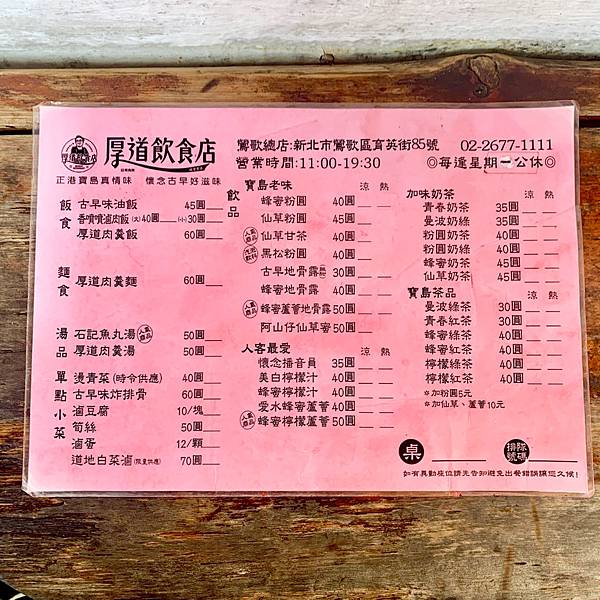 厚道飲食店
正港寶島真情味 懷念古早好滋味
鶯歌總店:新北市鶯歌區育英街85號 02-2677-1111
營業時間:11:00-19:30 ◎每逢星期二公休◎
飯食
古早味油飯 45圓
香噴噴滷肉飯 (大)40圓 (小)30圓
厚道肉羹飯 60圓
麵食
厚道肉羹麵 60圓
湯品
石記魚丸湯 人氣商品 50圓
厚道肉羹湯 50圓
單點小菜
燙青菜(時令供應) 40圓
古早味炸排骨 60圓
滷豆腐 10/塊
筍絲 50圓
滷蛋 12/顆
道地白菜滷(限量供應) 70圓
飲品
寶島老味 涼 熱
蜂蜜粉圓 40圓
仙草粉圓 45圓
人氣商品 仙草甘茶 40圓
黑松粉圓 40圓
古早地骨露 30圓
蜂蜜地骨露 40圓
人氣商品 蜂蜜蘆薈地骨露 50圓
阿山仔仙草蜜 50圓
人客最愛 涼 熱
懷念播音員 35圓
美白檸檬汁 40圓
蜂蜜檸檬汁 40圓
愛水蜂蜜蘆薈 40圓
人氣商品 蜂蜜檸檬蘆薈 50圓
加味奶茶 涼 熱
青春奶茶 35圓
曼波奶綠 35圓
粉圓奶茶 40圓
粉圓奶綠 40圓
蜂蜜奶茶 45圓
仙草奶茶 45圓
寶島茶品 涼 熱
曼波綠茶 30圓
青春紅茶 30圓
蜂蜜綠茶 40圓
蜂蜜紅茶 40圓
檸檬綠茶 40圓
檸檬紅茶 40圓
✡加粉圓5元
✡加仙草、蘆薈10元
桌 排隊號碼
如有異動座位請先告知避免出餐錯誤讓您久候!